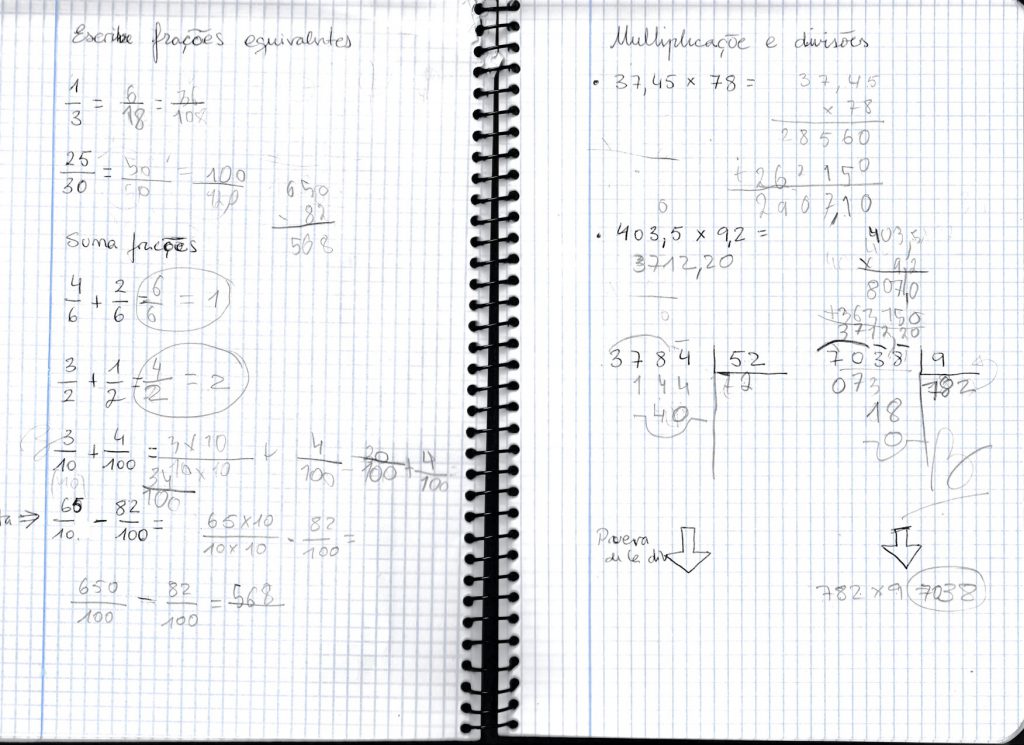 Escribe frações equivalentes
1/3 = 6/18 = 36/108
25/30 = 50/60 = 100/120
650
- 82
568
Suma frações
4/6 + 2/6 = 6/6 = 1
3/2 + 1/2 = 4/2 = 2
3/10 + 4/100 = 3×10/10×10 + 4/100 = 30/100 + 4/100
34/100
⇒ 65/10 - 82/100 = 65×10/10×10 - 82/100 =
650/100 - 82/100 = 568
Multiplicaçõe e divisões
• 37,45 × 78 =
37,45
× 78
28560
+ 262150
2907,10
• 403,5 × 9,2 =
3712,20
403,5
× 9,2
807,0
+363150
3712,20
3784 | 52
144 72
40
7038 | 9
073 782
18
0
Provera
de la div
782 × 9 7038